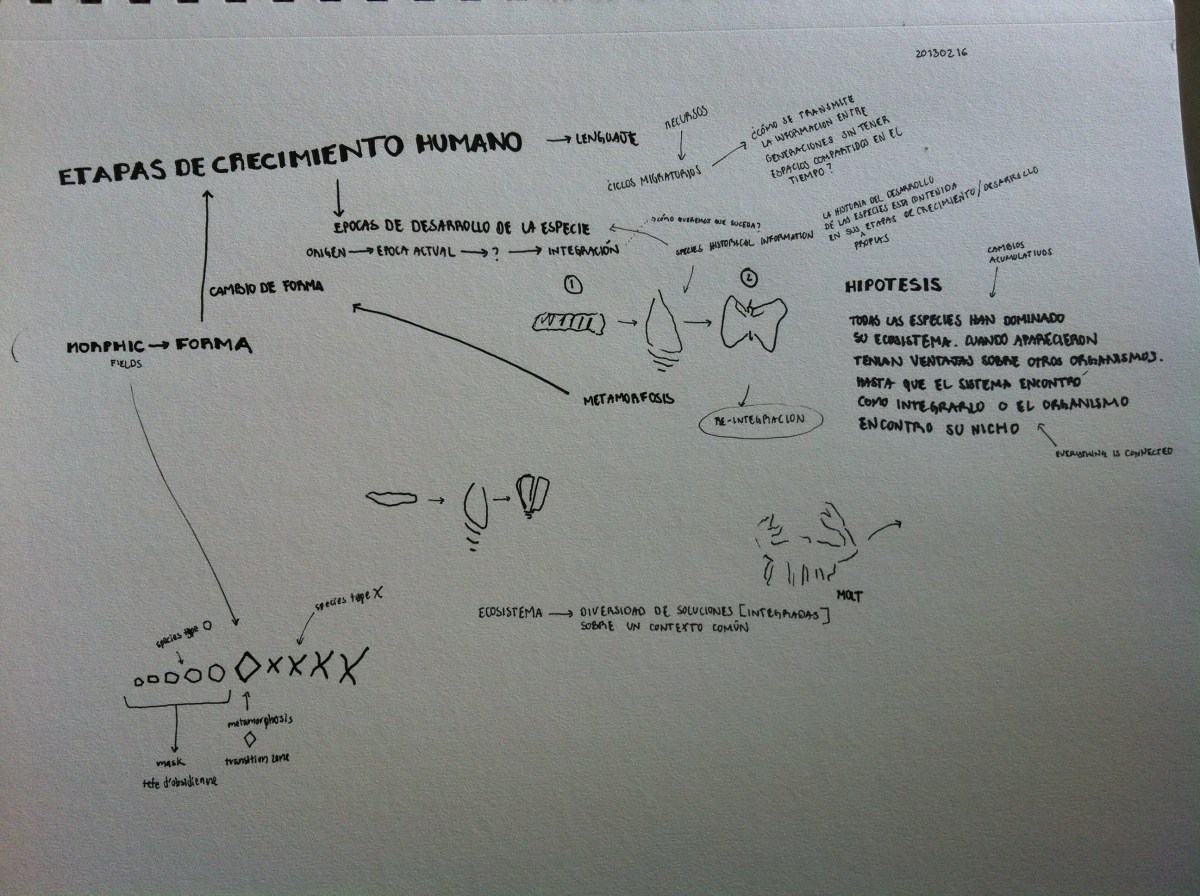 20130216
ETAPAS DE CRECIMIENTO HUMANO → LENGUAJE
RECURSOS
CICLOS MIGRATORIOS
¿CÓMO SE TRANSMITE
LA INFORMACION ENTRE
GENERACIONES SIN TENER
ESPACIOS COMPARTIDOS EN EL
TIEMPO?
EPOCAS DE DESARROLLO DE LA ESPECIE
ORIGEN → EPOCA ACTUAL → ? → INTEGRACIÓN
¿CÓMO QUEREMOS QUE SUCEDA?
SPECIES HISTORICAL INFORMATION
LA HISTORIA DEL DESARROLLO
DE LAS ESPECIES ESTA CONTENIDA
EN SUS ETAPAS DE CRECIMIENTO/DESARROLLO
PROPIAS
CAMBIO DE FORMA
MORPHIC → FORMA
FIELDS
1
2
METAMORFOSIS
RE-INTEGRACION
CAMBIOS
ACUMULATIVOS
HIPOTESIS
TODAS LAS ESPECIES HAN DOMINADO
SU ECOSISTEMA. CUANDO APARECIERON
TENIAN VENTAJAS SOBRE OTROS ORGANISMOS.
HASTA QUE EL SISTEMA ENCONTRÓ
COMO INTEGRARLO O EL ORGANISMO
ENCONTRO SU NICHO
EVERYTHING IS CONNECTED
MOLT
ECOSISTEMA → DIVERSIDAD DE SOLUCIONES [INTEGRADAS]
SOBRE UN CONTEXTO COMÚN
species type O
species type X
XXXX
metamorphosis
transition zone
mask
tete d'obsidienne